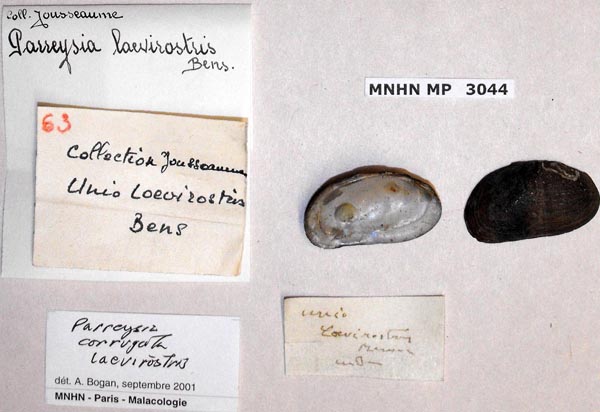 Coll. Jousseaume
Parreysia laevirostris
Bens.
MNHN MP 3044
63
Collection Jousseaume
Unio Loevirostris
Bens
Parreysia
corrugata
laevirostris
dét. A. Bogan, septembre 2001
MNHN - Paris - Malacologie
Unio
Loevirostris